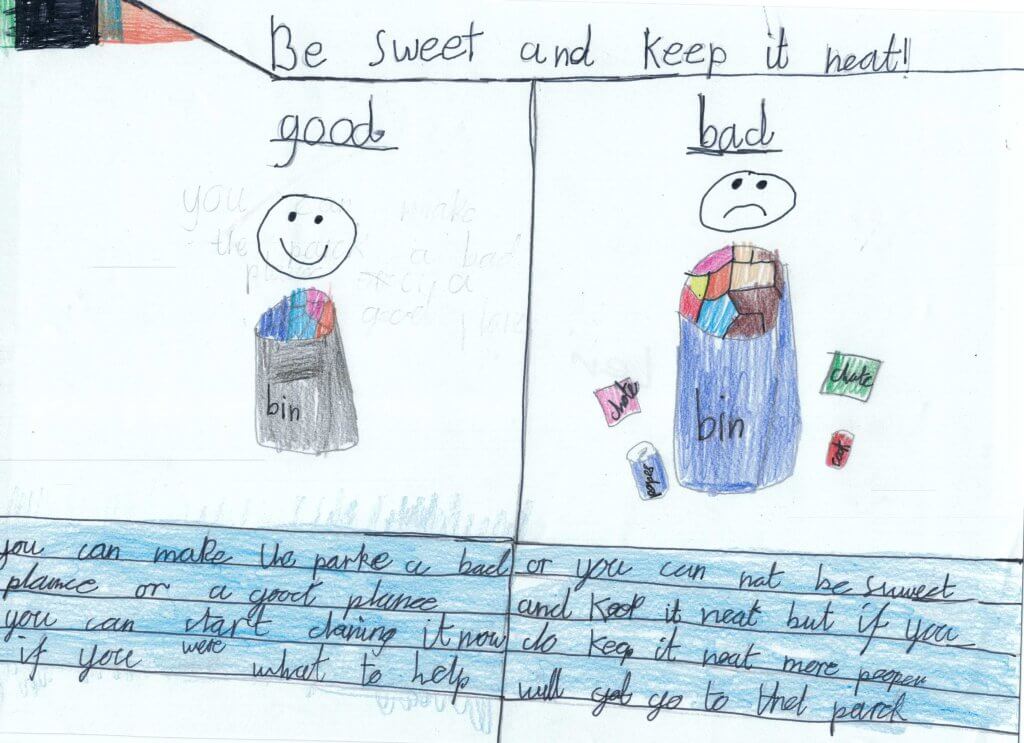 Be sweet and keep it neat!
good
bad
you can make
the park a bad
good
bin
bin
chute
paper
you can make the parke a bad
plance or a good planee
you can start claning it now
if you were what to help
or you can not be suweet
and keep it neat but if you
do keep it neat more peoper
will go to thet parck